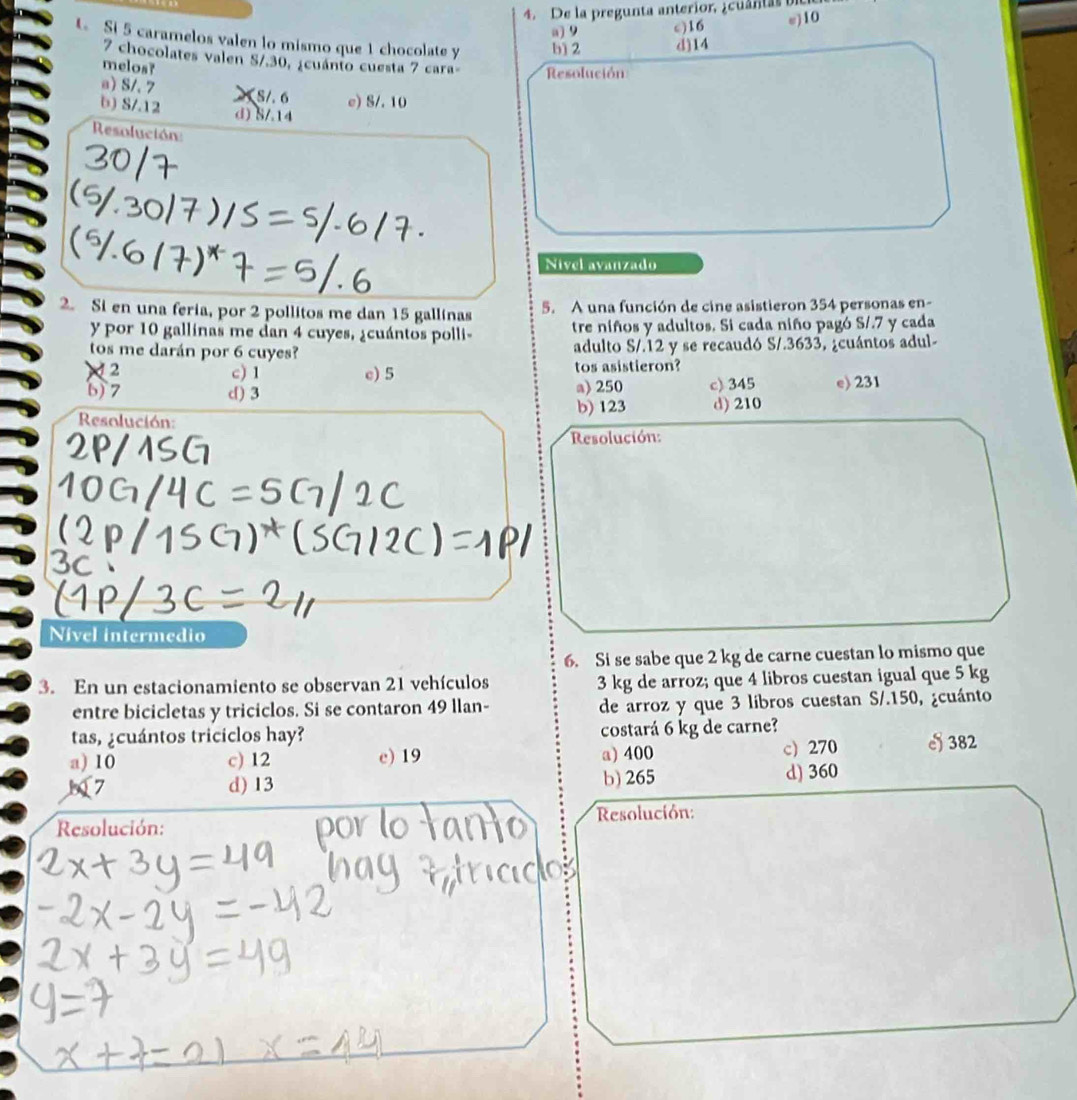 1. Si 5 caramelos valen lo mismo que 1 chocolate y
7 chocolates valen S/.30, ¿cuánto cuesta 7 cara-
melos?
a) S/. 7
S/. 6
e) S/. 10
b) S/.12
d) S/.14
Resolución:
30/7
(S/.30/7)/5 = S/.6/7.
(S/.6/7)*7 = S/.6
2. Si en una feria, por 2 pollitos me dan 15 gallinas
y por 10 gallinas me dan 4 cuyes, ¿cuántos polli-
tos me darán por 6 cuyes?
2
c) 1
e) 5
b) 7
d) 3
Resolución:
2P/15G
10G/4C = 5G/2C
(2P/15G)*(5G/2C)=1P/
3C.
(1P/3C = 2//
Nivel intermedio
3. En un estacionamiento se observan 21 vehículos
entre bicicletas y triciclos. Si se contaron 49 llan-
tas, ¿cuántos triciclos hay?
a) 10
c) 12
e) 19
b) 7
d) 13
Resolución:
por lo tanto
hay 7,, triciclos
2x+3y=49
-2x-2y=-42
2x+3y=49
y=7
x+7=21 x=14
4. De la pregunta anterior, ¿cuántas
a) 9
c)16
e)10
b) 2
d)14
Resolución
Nivel avanzado
5. A una función de cine asistieron 354 personas en-
tre niños y adultos. Si cada niño pagó S/.7 y cada
adulto S/.12 y se recaudó S/.3633, ¿cuántos adul-
tos asistieron?
a) 250
c) 345
e) 231
b) 123
d) 210
Resolución:
6. Si se sabe que 2 kg de carne cuestan lo mismo que
3 kg de arroz; que 4 libros cuestan igual que 5 kg
de arroz y que 3 libros cuestan S/.150, ¿cuánto
costará 6 kg de carne?
a) 400
c) 270
e) 382
b) 265
d) 360
Resolución: